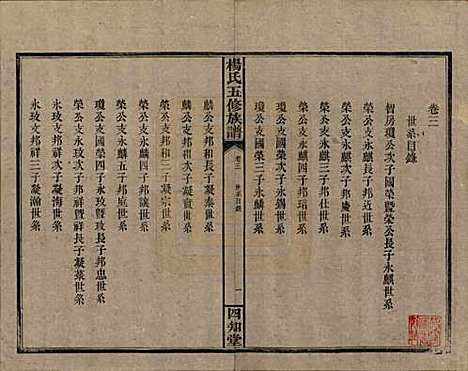 卷三
世系目錄
智房瓊公次子國榮暨榮公長子永麒世系
榮公支永麒長子邦近世系
榮公支永麒次子邦慶世系
榮公支永麒三子邦仕世系
榮公支永麒四子邦瑞世系
瓊公支國榮次子永錫世系
瓊公支國榮三子永麟世系
楊氏五修族譜
卷三
世系目錄
一
四知堂
麟公支邦和長子凝泰世系
麟公支邦和次子凝寶世系
麟公支邦和三子凝宗世系
榮公支永麟四子邦謨世系
榮公支永麟五子邦庭世系
瓊公支國榮四子永玫暨玫長子邦忠世系
榮公支永玫次子邦祥暨祥長子凝葉世系
永玫支邦祥次子凝海世系
永玫支邦祥三子凝瀚世系